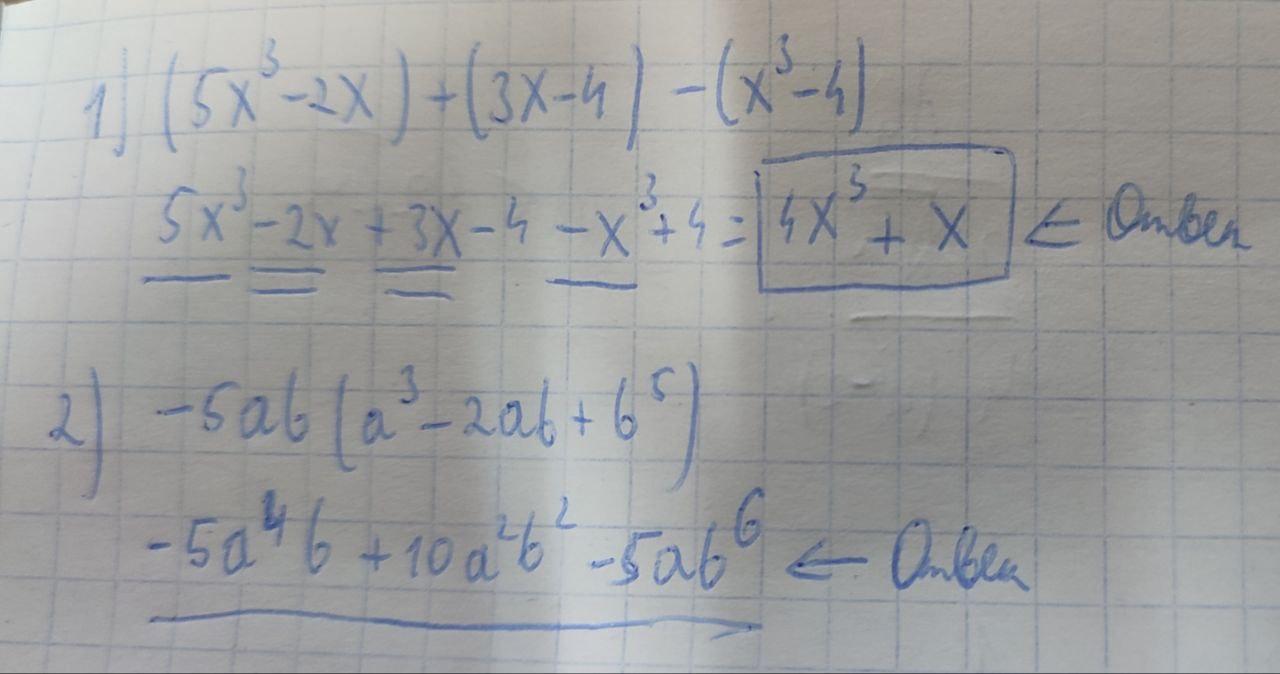 1) (5x³-2x)+(3x-4)-(x³-4)
5x³-2x+3x-4-x³+4=4x³+x ← Ответ
2) -5ab(a³-2ab+b⁵)
-5a⁴b+10a²b²-5ab⁶ ← Ответ